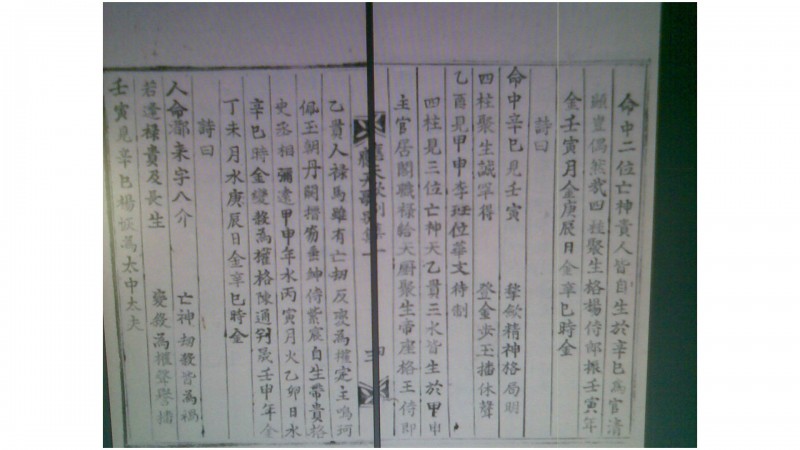 命中二位亡神貴人皆自生於辛巳為官清
顯豈偶然哉四柱聚生格楊侍郎振壬寅年
金壬寅月金庚辰日金辛巳時金
詩曰
命中辛巳見壬寅 歛精神格局明
四柱聚生誠罕得 登金步玉播休聲
乙酉見甲申李班位華文待制
四柱見三位亡神天乙貴三水皆生於甲申
主官居閣職祿給天廚聚生帝座格王侍郎
乙貴人祿馬雖有亡劫反變為權定主鳴珂
佩玉朝丹闕搢笏垂紳侍紫宸自生帶貴格
史丞相彌遠甲申年水丙寅月火乙卯日水
辛巳時金變殺為權格陳通判晟壬申年金
丁未月水庚辰日金辛巳時金
詩曰
人命都来字八介 亡神劫殺皆為禍
若逢祿貴及長生 變殺為權聲譽播
壬寅見辛巳楊恢為太中太夫